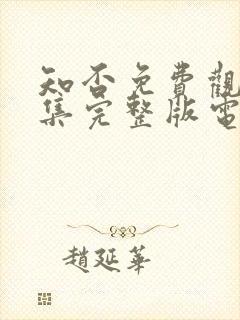 知否免費觀
集完整版電
趙延華